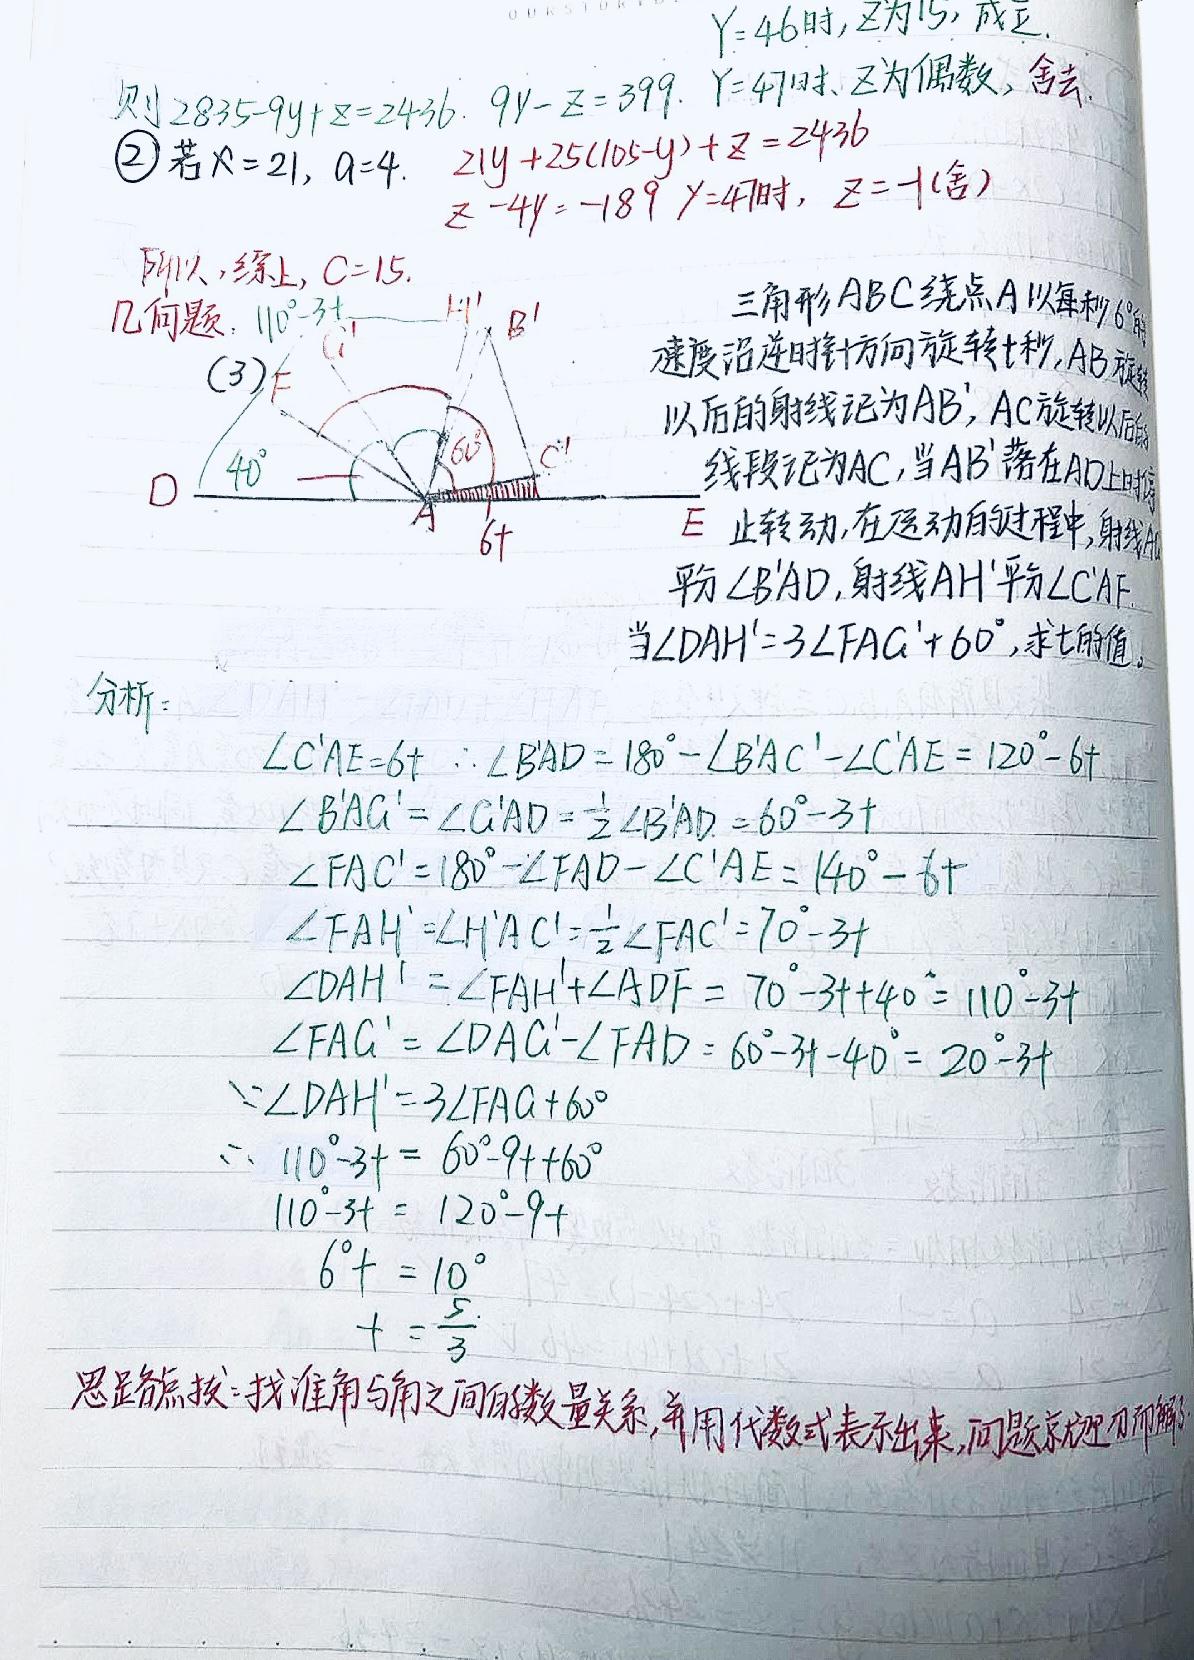 Y=46时,Z为15,成立.
则2835-9y+z=2436. 9y-z=399. Y=47时、Z为偶数,舍去.
②若x=21, a=4. 21y+25(105-y)+z=2436
z-4y=-189 Y=47时, z=-1(舍)
所以,综上, C=15.
几何题. 110°-3t G' H' B'
(3) F
D 40° 60° C'
A E
6t
三角形ABC绕点A以每秒6°的
速度沿逆时针方向旋转t秒,AB旋转
以后的射线记为AB', AC旋转以后的
线段记为AC,当AB'落在AD上时停
止转动,在运动的过程中,射线AG
平分∠B'AD,射线AH'平分∠C'AF.
当∠DAH'=3∠FAG'+60°,求t的值。
分析:
∠C'AE=6t ∴∠B'AD=180°-∠B'AC'-∠C'AE=120°-6t
∠B'AG'=∠G'AD=1/2∠B'AD=60°-3t
∠FAC'=180°-∠FAD-∠C'AE=140°-6t
∠FAH'=∠H'AC'=1/2∠FAC'=70°-3t
∠DAH'=∠FAH'+∠ADF=70°-3t+40°=110°-3t
∠FAG'=∠DAG'-∠FAD=60°-3t-40°=20°-3t
∵∠DAH'=3∠FAG+60°
∴ 110°-3t=60°-9t+60°
110°-3t=120°-9t
6°t=10°
t=5/3
思路点拨:找准角与角之间的数量关系,并用代数式表示出来,问题就迎刃而解了.